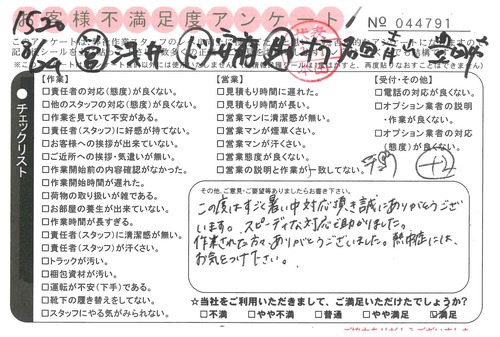 お客様不満足度アンケート
№ 044791
チェックリスト
【作業】
□責任者の対応(態度)が良くない。
□他のスタッフの対応(態度)が良くない。
□作業を見ていて不安がある。
□責任者(スタッフ)に好感が持てない。
□お客様への挨拶が出来ていない。
□ご近所への挨拶・気遣いが無い。
□作業開始前の内容確認がなかった。
□作業開始時間が遅れた。
□荷物の取り扱いが雑である。
□お部屋の養生が出来ていない。
□作業時間が長すぎる。
□責任者(スタッフ)に清潔感が無い。
□責任者(スタッフ)が汗くさい。
□トラックが汚い。
□梱包資材が汚い。
□運転が不安(下手)である。
□靴下の履き替えをしてない。
□スタッフにやる気がみられない。
【営業】
□見積もり時間に遅れた。
□見積もり時間が長い。
□営業マンに清潔感が無い。
□営業マンが煙草くさい。
□営業マンが汗くさい。
□営業態度が良くない。
□営業の説明と作業が一致してない。
【受付・その他】
□電話の対応が良くない。
□オプション業者の説明
・作業が良くない。
□オプション業者の対応
(態度)が良くない。
その他、ご意見・ご要望等ありましたらお書き下さい。
この度はすごく暑い中対応頂き誠にありがとうござい
ます。スピーディな対応で助かりました。
作業された方々、ありがとうございました。熱中症には、
お気をつけ下さい。
☆当社をご利用いただきまして、ご満足いただけたでしょうか?
□不満 □やや不満 □普通 □やや満足 ☑満足